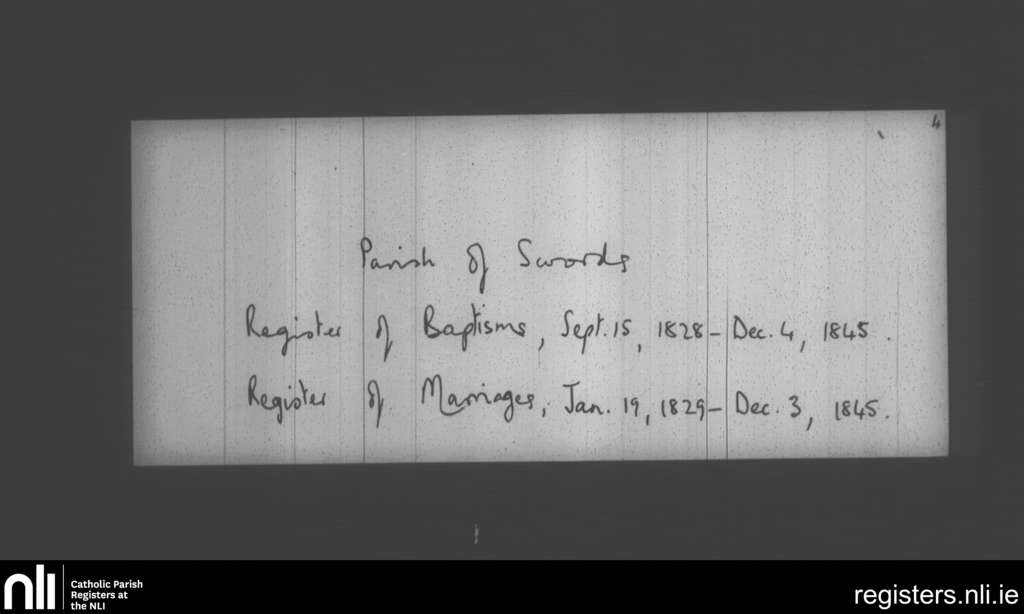 4
Parish of Swords
Register of Baptisms, Sept. 15, 1828 – Dec. 4, 1845.
Register of Marriages, Jan. 19, 1829 – Dec. 3, 1845.
nli
Catholic Parish
Registers at
the NLI
registers.nli.ie